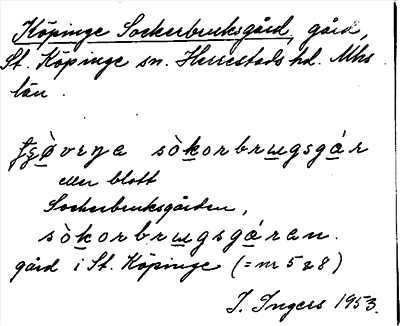 Köpinge Sockerbruksgård, gård,
St. Köpinge sn. Herrestads hd. Mhs
län.
sòkorbrugsgár
eller blott
Sockerbruksgården,
sòkorbrugsgáran.
gård i St. Köpinge (= nr 5 o 8)
I. Ingers 1953.